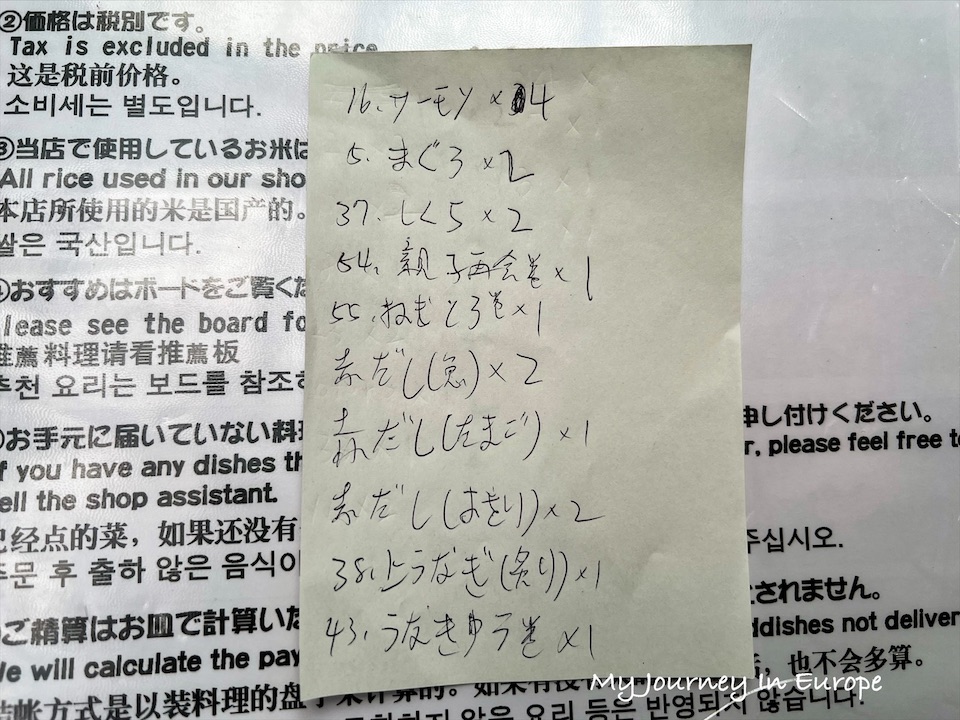 ②価格は税別です。
Tax is excluded in the price
这是税前价格。
소비세는 별도입니다.
③当店で使用しているお米は
All rice used in our sho
本店所使用的米是国产的。
쌀은 국산입니다.
④おすすめはボードをご覧くだ
Please see the board fo
推薦料理请看推薦板
추천 요리는 보드를 참조하
お手元に届いていない料理
If you have any dishes th
tell the shop assistant.
已经点的菜，如果还没有
주문 후 출하 않은 음식이
ご精算はお皿で計算いた
We will calculate the pay
结帐方式是以装料理的盘子来计算的。如果有没
16. サーモン ×4
5. まぐろ ×2
37. しくら ×2
54. 親子再会巻 ×1
55. ねぎとろ巻 ×1
赤だし ×2
赤だし(たまご) ×1
赤だし ×2
38. 上うなぎ(炙り) ×1
43. うなきゅう巻 ×1
申し付けください。
r, please feel free to
주십시오.
されません。
ddishes not deliver
，也不会多算。
않은 요리 등은 반영되지 않습니다.
My Journey in Europe